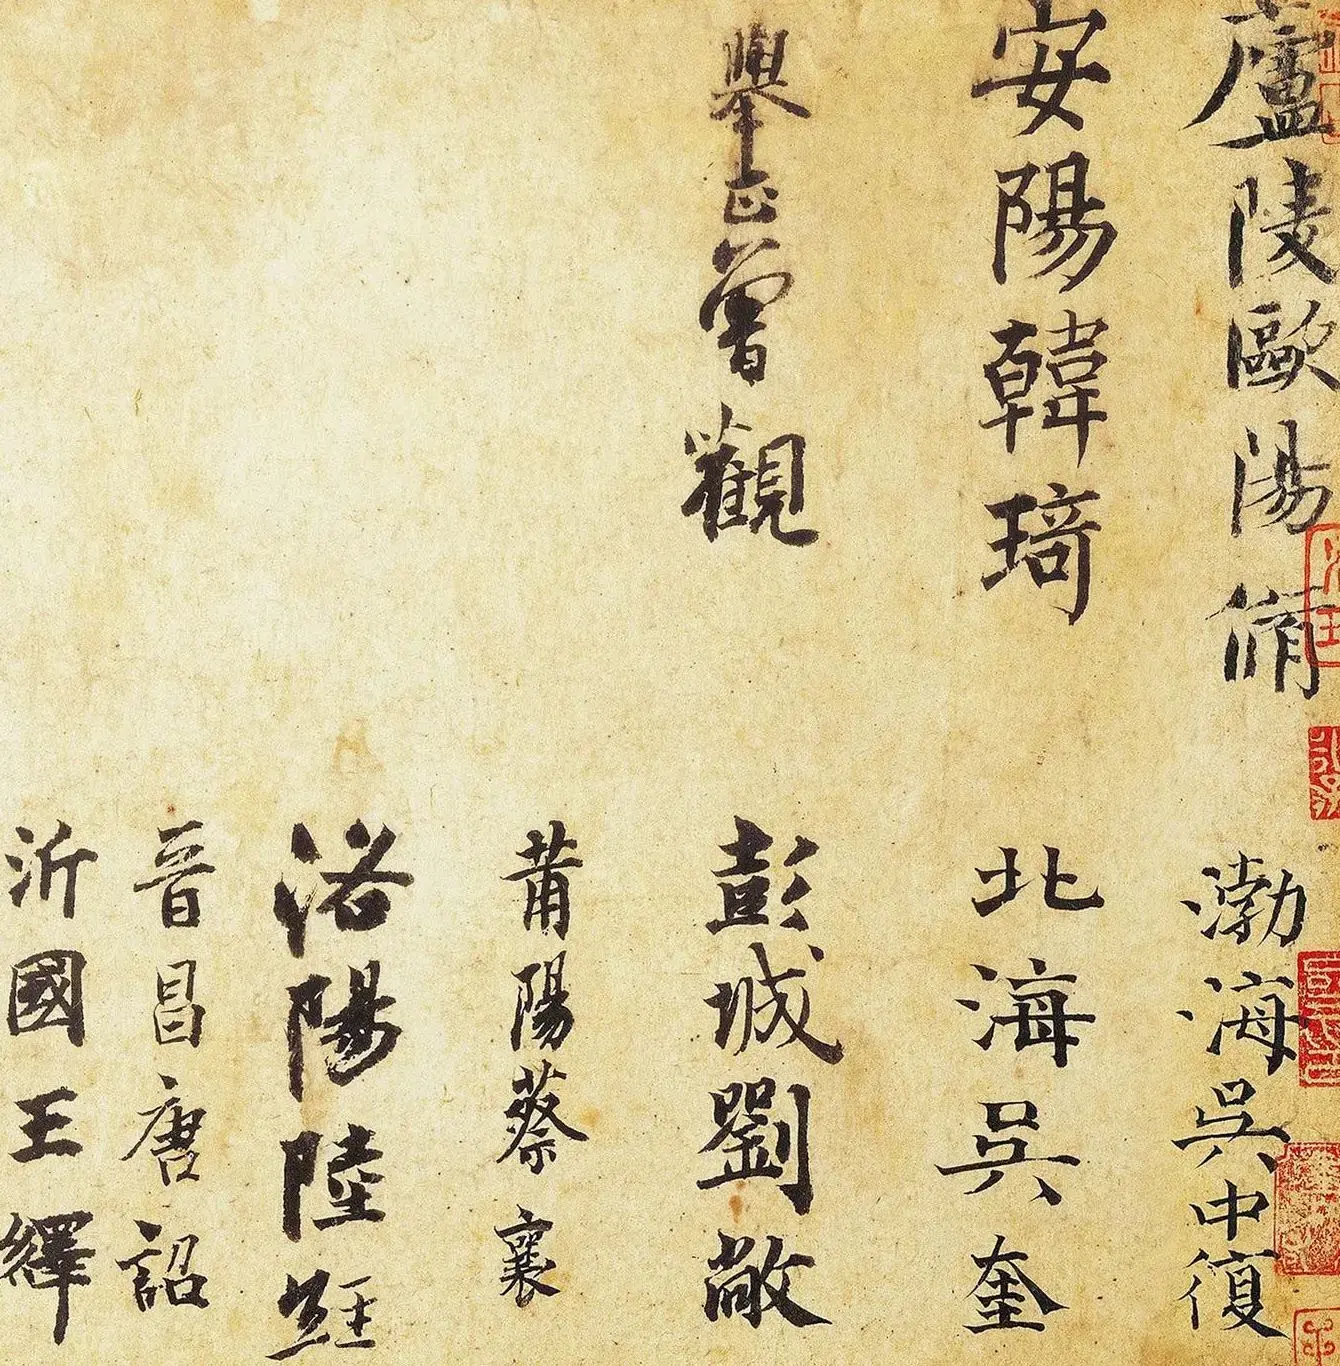 廬陵歐陽脩
渤海吳中復
安陽韓琦
北海吳奎
舉正曾觀
彭城劉敞
莆陽蔡襄
洛陽陸經
晉昌唐詔
沂國王繹